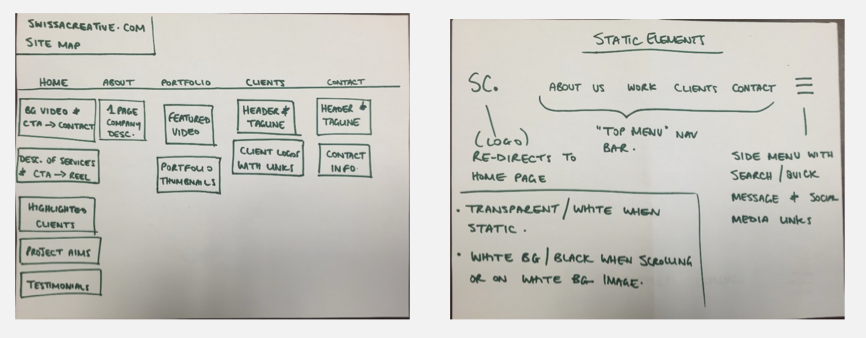 SWISSACREATIVE.COM
SITE MAP
HOME ABOUT PORTFOLIO CLIENTS CONTACT
BG VIDEO &
CTA → CONTACT
DESC. OF SERVICES
& CTA → REEL
HIGHLIGHTED
CLIENTS
PROJECT AIMS
TESTIMONIALS
1 PAGE
COMPANY
DESC.
FEATURED
VIDEO
PORTFOLIO
THUMBNAILS
HEADER &
TAGLINE
CLIENT LOGOS
WITH LINKS
HEADER &
TAGLINE
CONTACT
INFO.
STATIC ELEMENTS
SC. ABOUT US WORK CLIENTS CONTACT
(LOGO)
RE-DIRECTS TO
HOME PAGE
"TOP MENU" NAV
BAR.
SIDE MENU WITH
SEARCH / QUICK
MESSAGE & SOCIAL
MEDIA LINKS
• TRANSPARENT / WHITE WHEN
STATIC.
• WHITE BG / BLACK WHEN SCROLLING
OR ON WHITE BG IMAGE.